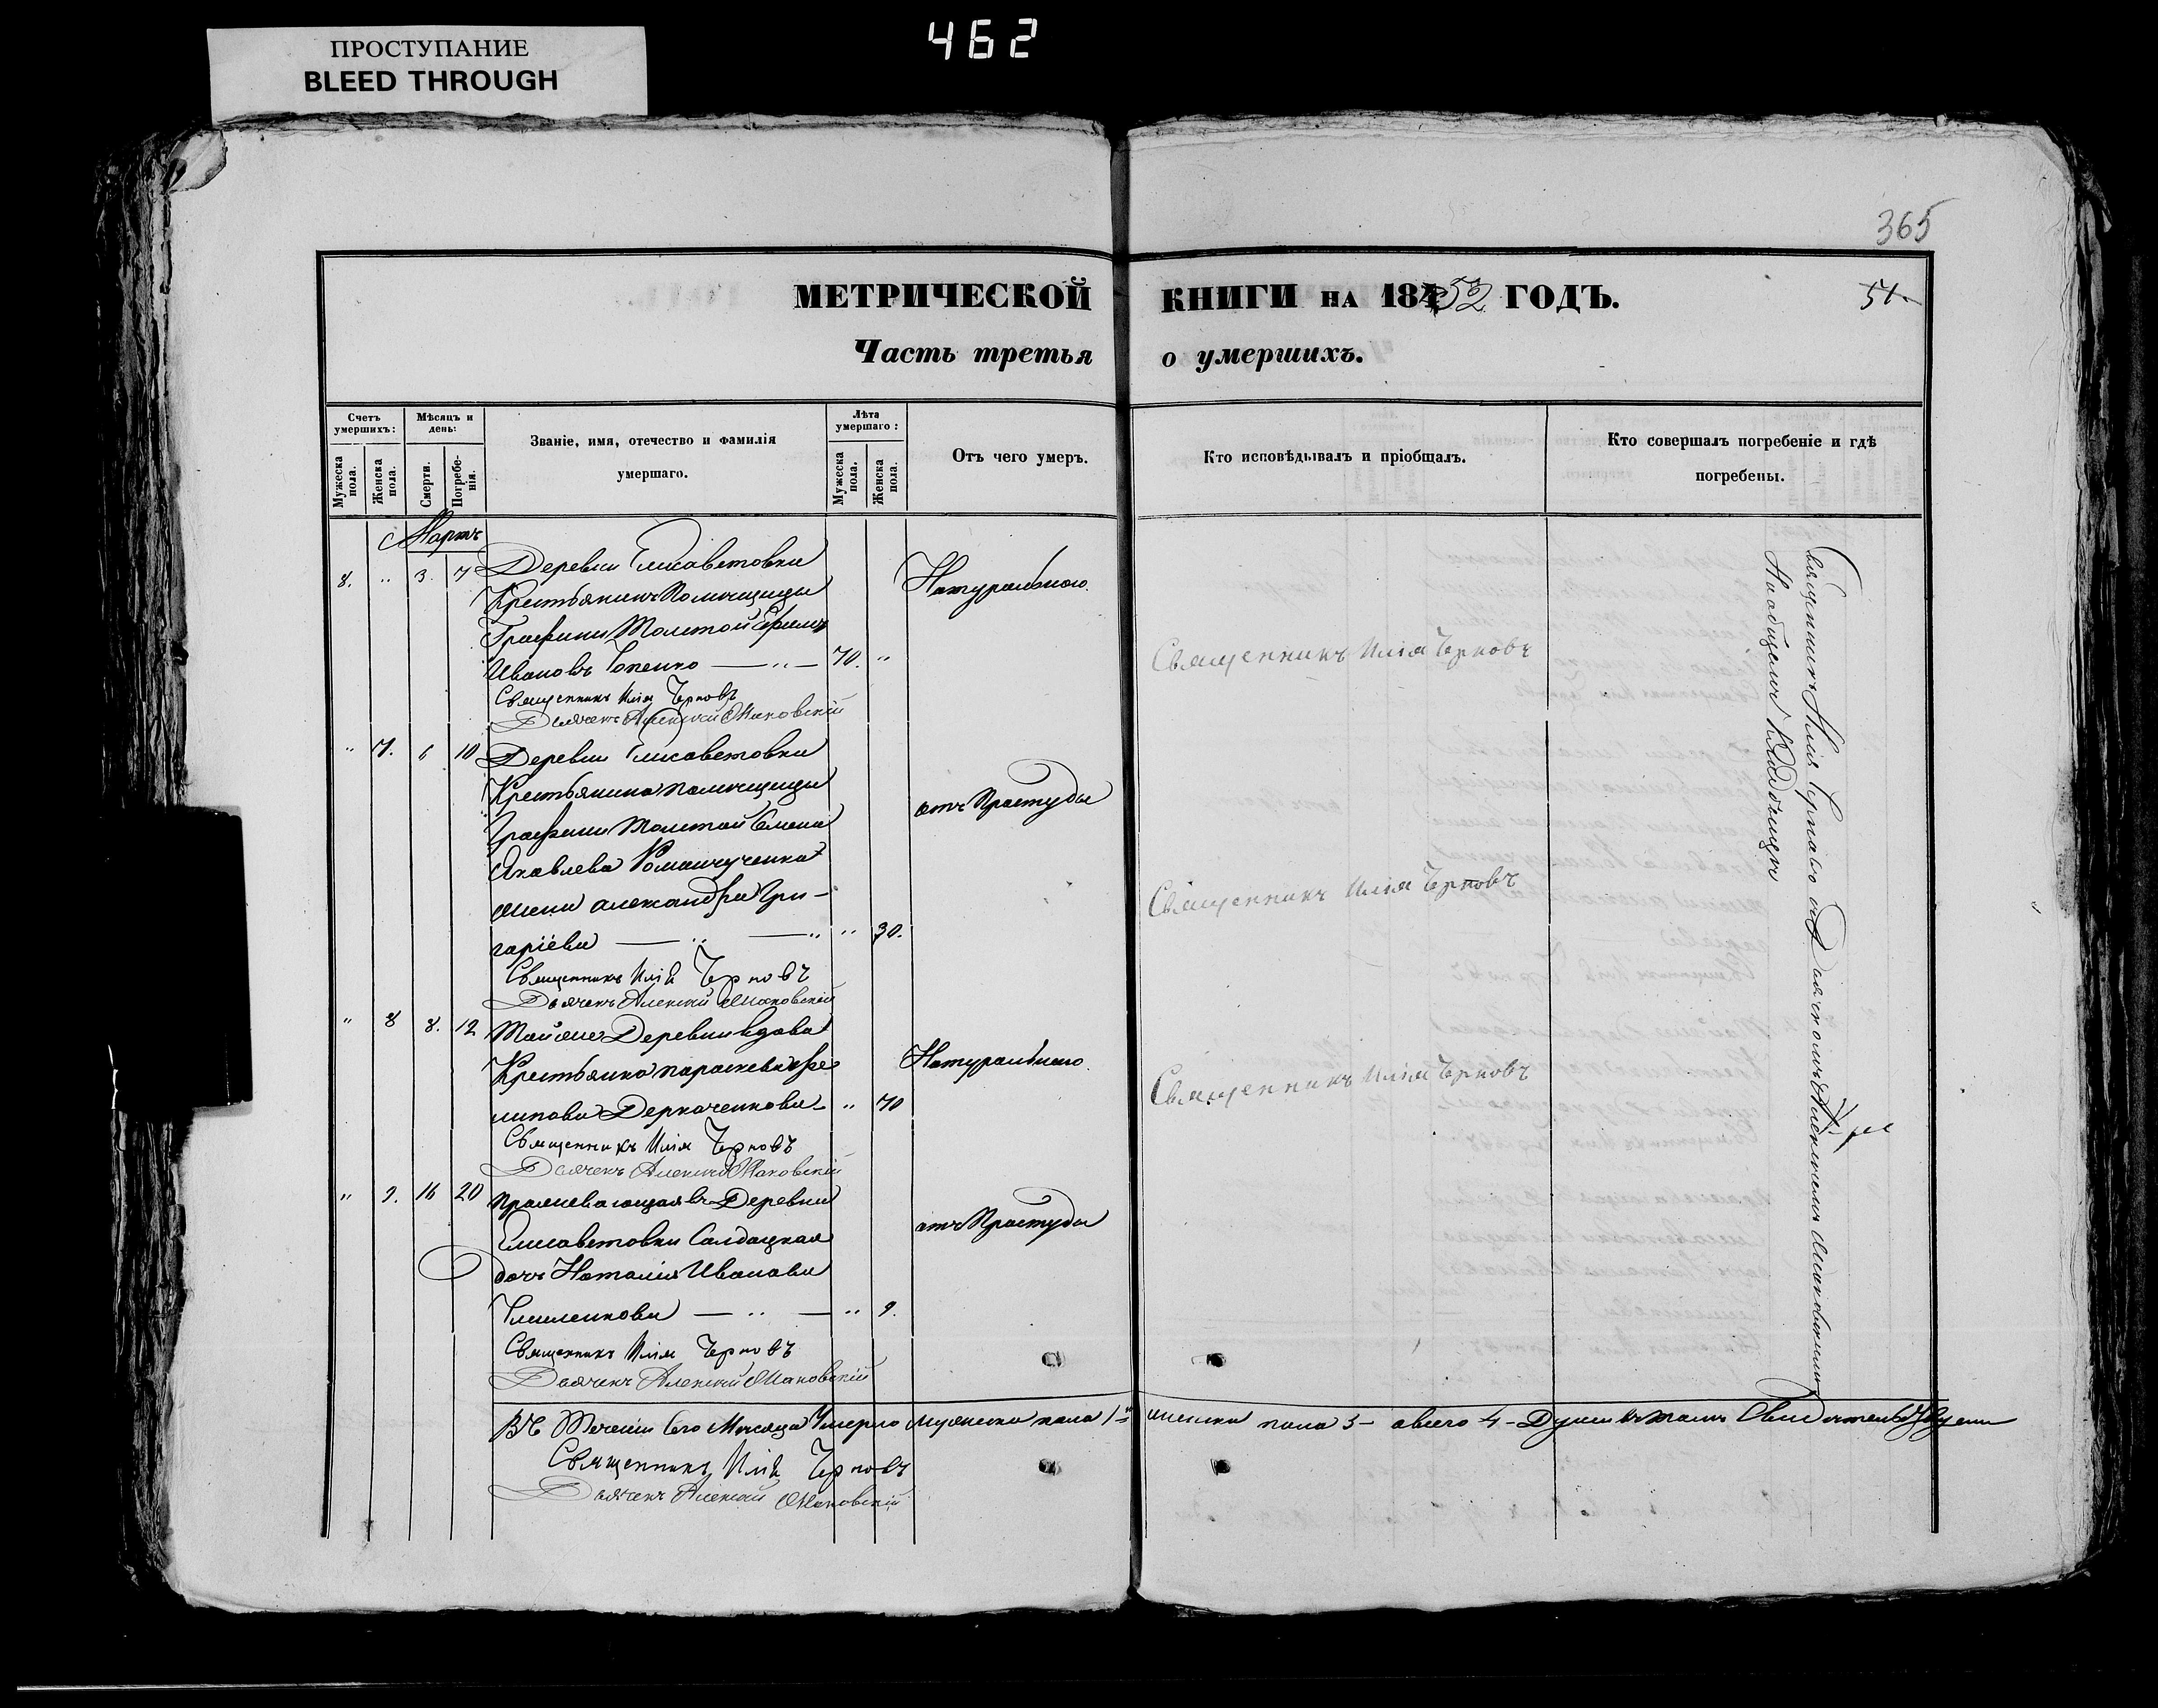 ПРОСТУПАНИЕ
BLEED THROUGH
462
365
МЕТРИЧЕСКОЙ КНИГИ НА 1852 ГОДЪ.
51.
Часть третья о умершихъ.
Счетъ умершихъ:
Мужеска пола.
Женска пола.
Мѣсяцъ и день:
Смерти.
Погребенія.
Званіе, имя, отечество и фамилія умершаго.
Лѣта умершаго:
Мужеска пола.
Женска пола.
Отъ чего умеръ.
Кто исповѣдывалъ и пріобщалъ.
Кто совершалъ погребеніе и гдѣ погребены.
Мартъ
8. " 3. 7 Деревни Елисаветовки
Крестьянинъ Помещицы
Натурально.
Графини Толстой
Ивановъ 70. "
Священникъ Илія Черновъ
Священникъ Илія Черновъ
Дьячекъ Алексій Маковскій
" 7. 6 10 Деревни Елисаветовки
Крестьянина помещицы
отъ Простуды
Графини Толстой Семена
Яковлева Романчученка
жена александра Гри-
горіева " 30.
Священникъ Илія Черновъ
Священникъ Илія Черновъ
Дьячекъ Алексій Маковскій
" 8 8. 12 Тойже Деревни вдова
Крестьянка параскева Фи
Натурально.
липова Деркаченкова " 70
Священникъ Илія Черновъ
Священникъ Илія Черновъ
Дьячекъ Алексій Маковскій
" 9. 16 20 проживающая въ Деревни
Елисаветовки Салдацкая
отъ Простуды
дочь Наталія Иванова
" 9.
Священникъ Илія Черновъ
Дьячекъ Алексій Маковскій
Священникъ Илія Черновъ съ Дьячкомъ Алексіемъ Маковскимъ
На общемъ Кладбищѣ
Въ Теченіи Сего Месяца Умерло мужеска пола 1- женска пола 3- авсего 4- Души
Священникъ Илія Черновъ
Дьячекъ Алексій Маковскій